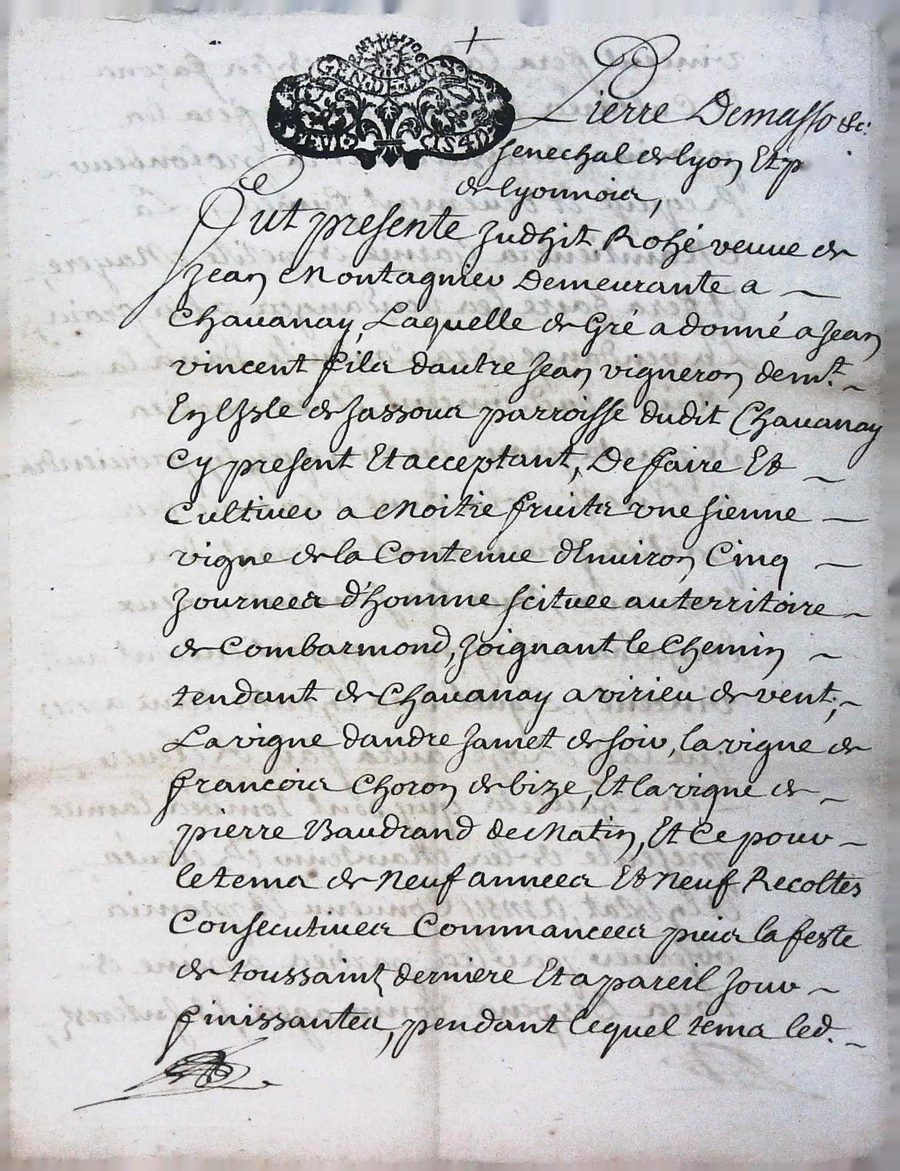 GEN DE LION
DEVX S 4 D
Pierre Demasso &c:
senechal de lyon Et p
de lyonnois,
Fut presente Judhit Rosé veuve de
Jean Montagnier Demeurante a
Chavanay, Laquelle de Gré a donné a Jean
vincent fils dautre Jean vigneron demt.
En L'Isle de Jassoux parroisse dudit Chavanay
Cy present Et acceptant, De faire Et
Cultiver a Moitié fruits vne sienne
vigne de la Contenue d'Environ Cinq
Journees d'homme scituee au territoire
de Combarmond, Joignant le Chemin
tendant de Chavanay a virieu de vent;
La vigne dandré Jamet de soir, la vigne de
francois Choron de bize, Et la vigne de
pierre Baudrand de Matin, Et Ce pour
le tems de Neuf annees Et Neuf Recoltes
Consecutives Commancees puis la feste
de toussaint derniere Et a pareil Jour
finissantes, pendant lequel tems led.